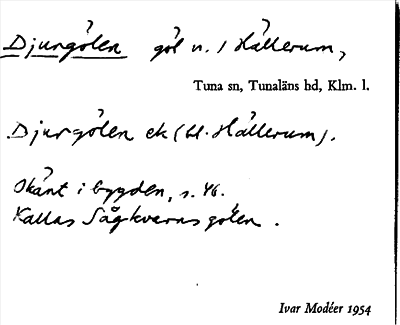 Djurgölen göl n. / Hällerum,
Tuna sn, Tunaläns hd, Klm. l.
Djurgölen ek (bl. Hällerum).
Okänt i bygden, s. 46.
Kallas Sågkvarnsgölen.
Ivar Modéer 1954